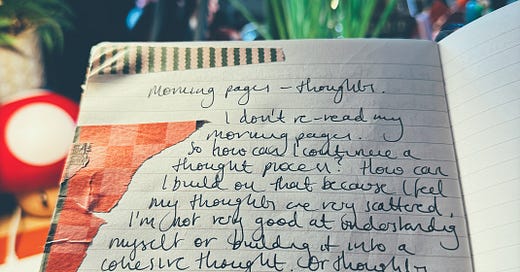 Morning pages – thoughts.
I don't re-read my
morning pages.
So how can I continue a
thought process? How can
I build on that because I feel
my thoughts are very scattered.
I'm not very good at understanding
myself or building it into a
cohesive thought. Or thoughts